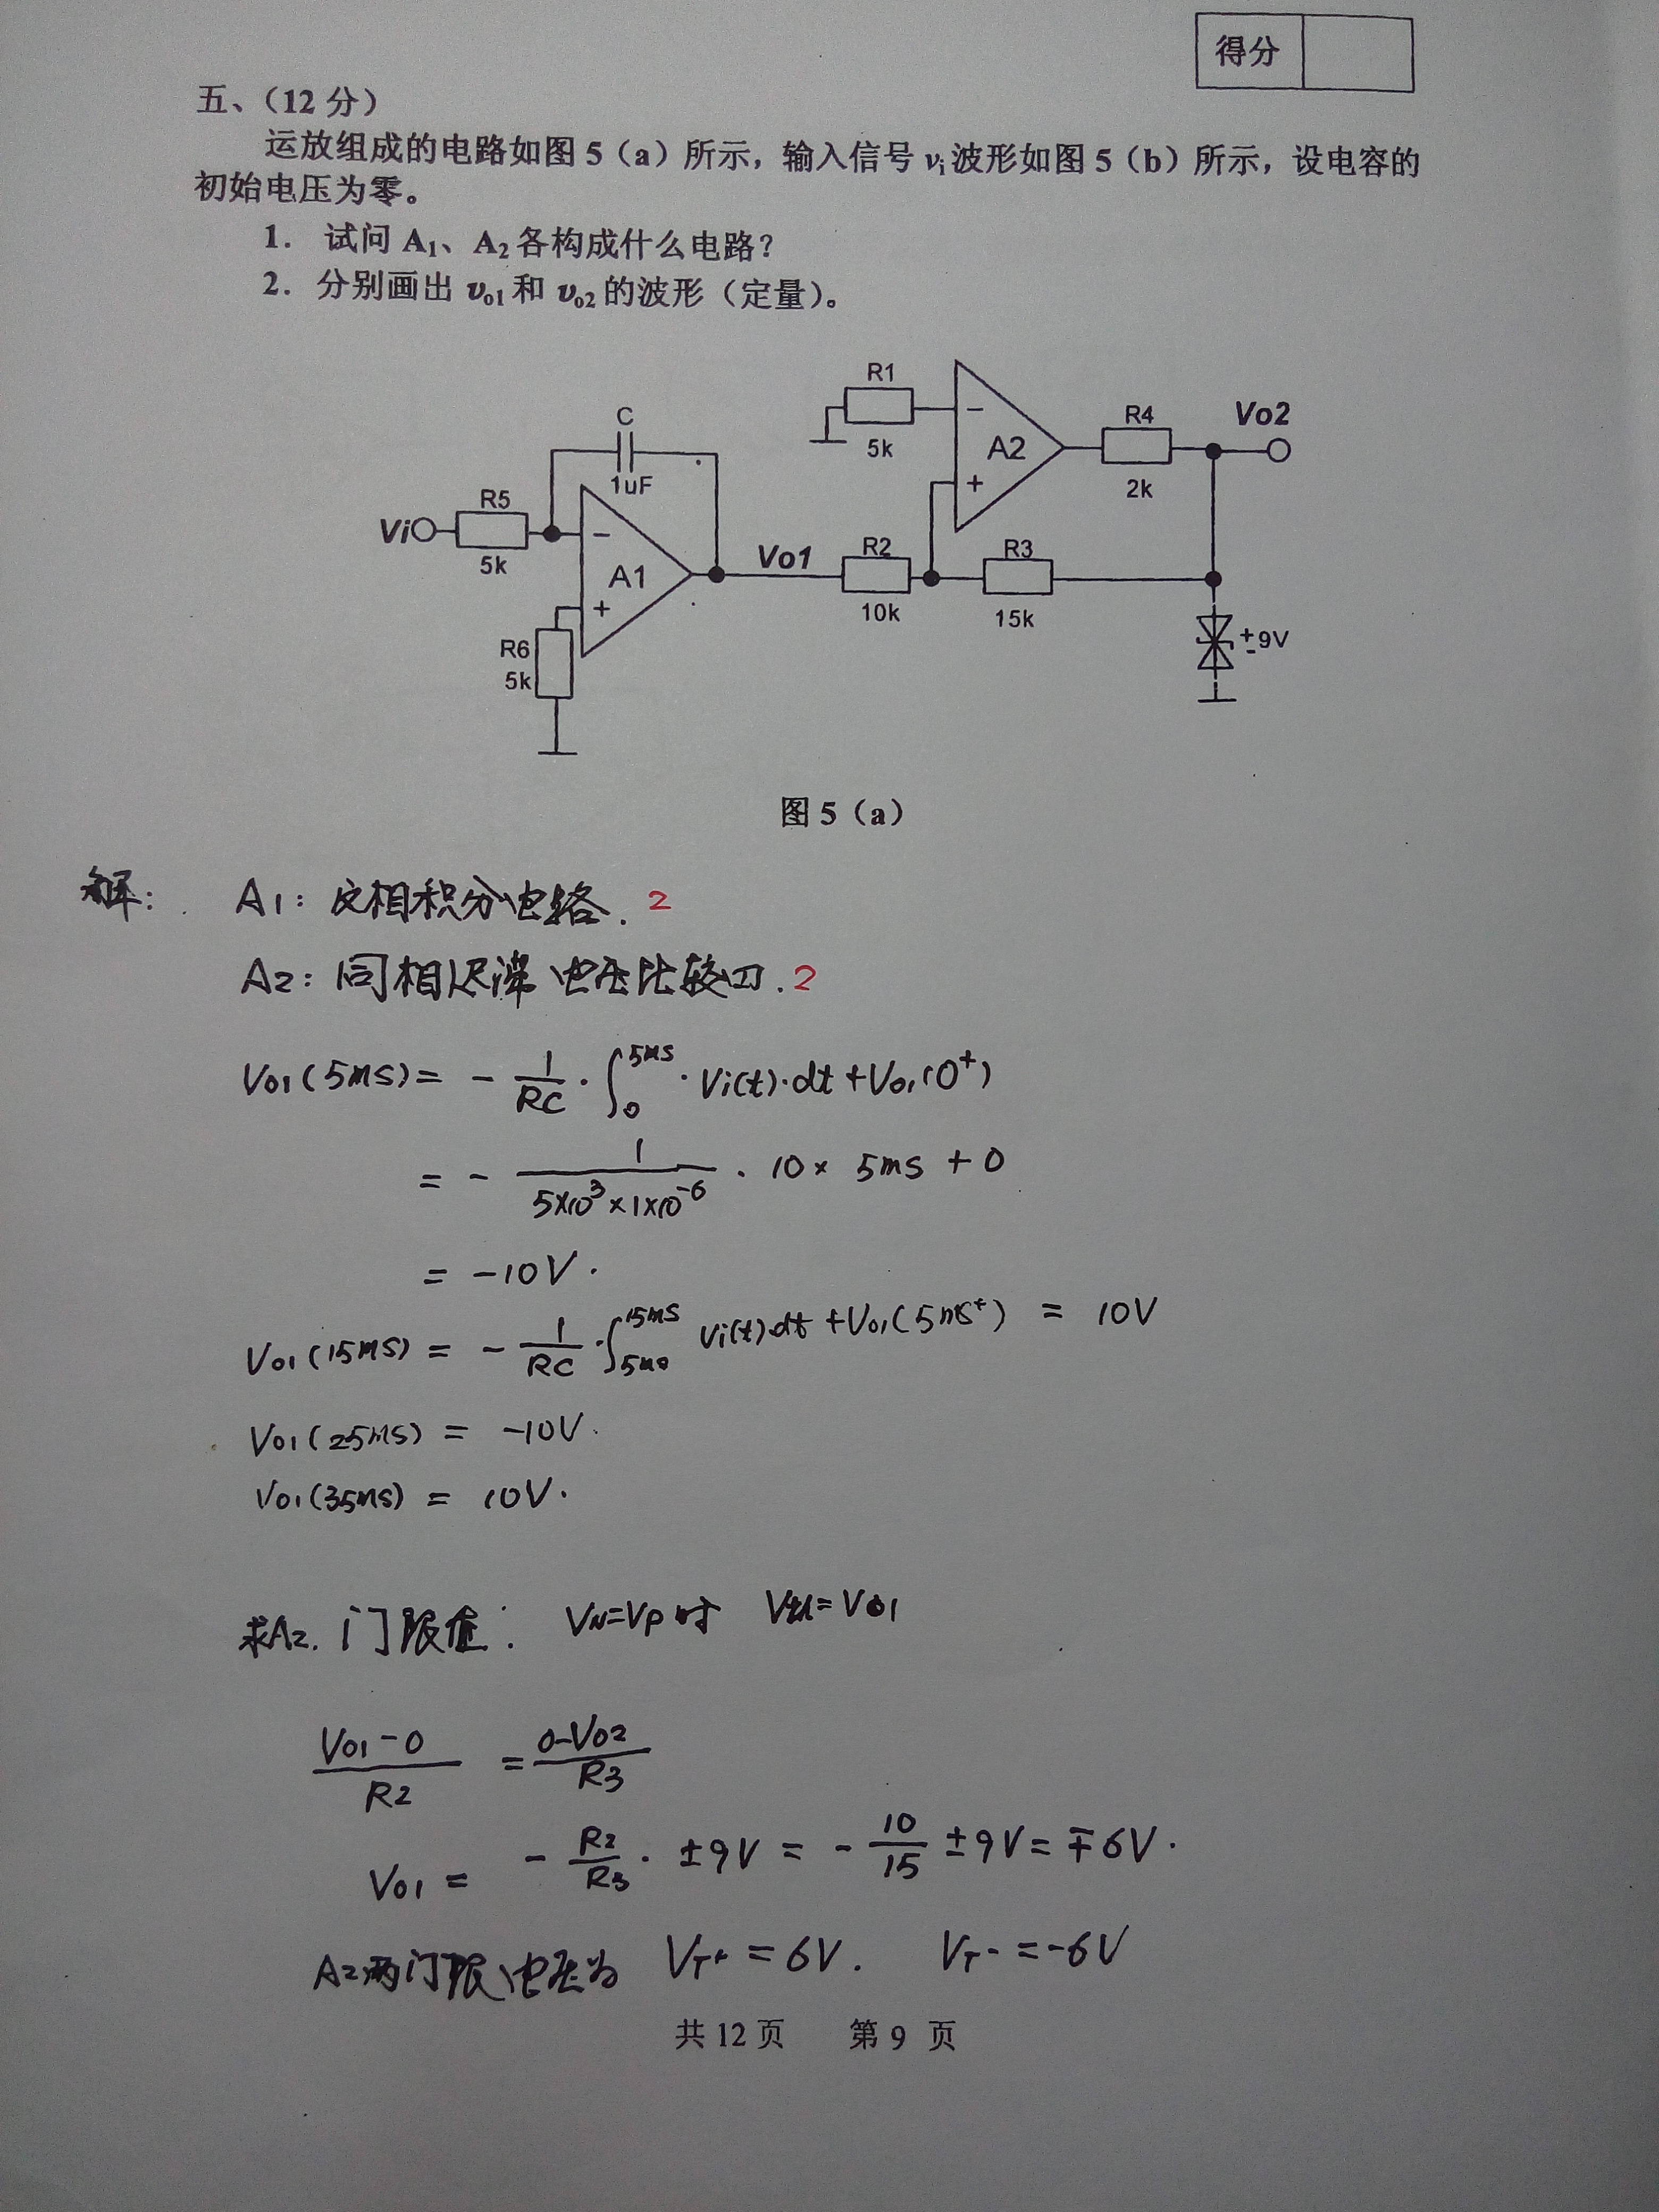 得分
五、（12 分）
运放组成的电路如图 5（a）所示，输入信号 vi 波形如图 5（b）所示，设电容的
初始电压为零。
1. 试问 A1、A2 各构成什么电路？
2. 分别画出 vo1 和 vo2 的波形（定量）。
R1
5k
A2
R4
2k
Vo2
C
1uF
Vi
R5
5k
A1
Vo1
R2
10k
R3
15k
R6
5k
+-9V
图 5（a）
解：
A1：反相积分电路. 2
A2：同相迟滞电压比较四. 2
Vo1(5ms) = - 1/RC · ∫0^5ms · Vi(t)·dt + Vo1(0+)
= - 1/(5×10^3×1×10^-6) · 10 × 5ms + 0
= -10V.
Vo1(15ms) = - 1/RC · ∫5ms^15ms Vi(t)·dt + Vo1(5ms+) = 10V
Vo1(25ms) = -10V.
Vo1(35ms) = 10V.
求A2. 门限值： VN=VP时 =Vo1
(Vo1-0)/R2 = (0-Vo2)/R3
Vo1 = - R2/R3 · ±9V = - 10/15 ±9V = ∓6V.
A2两门限电压为 VT+ = 6V. VT- = -6V
共 12 页 第 9 页